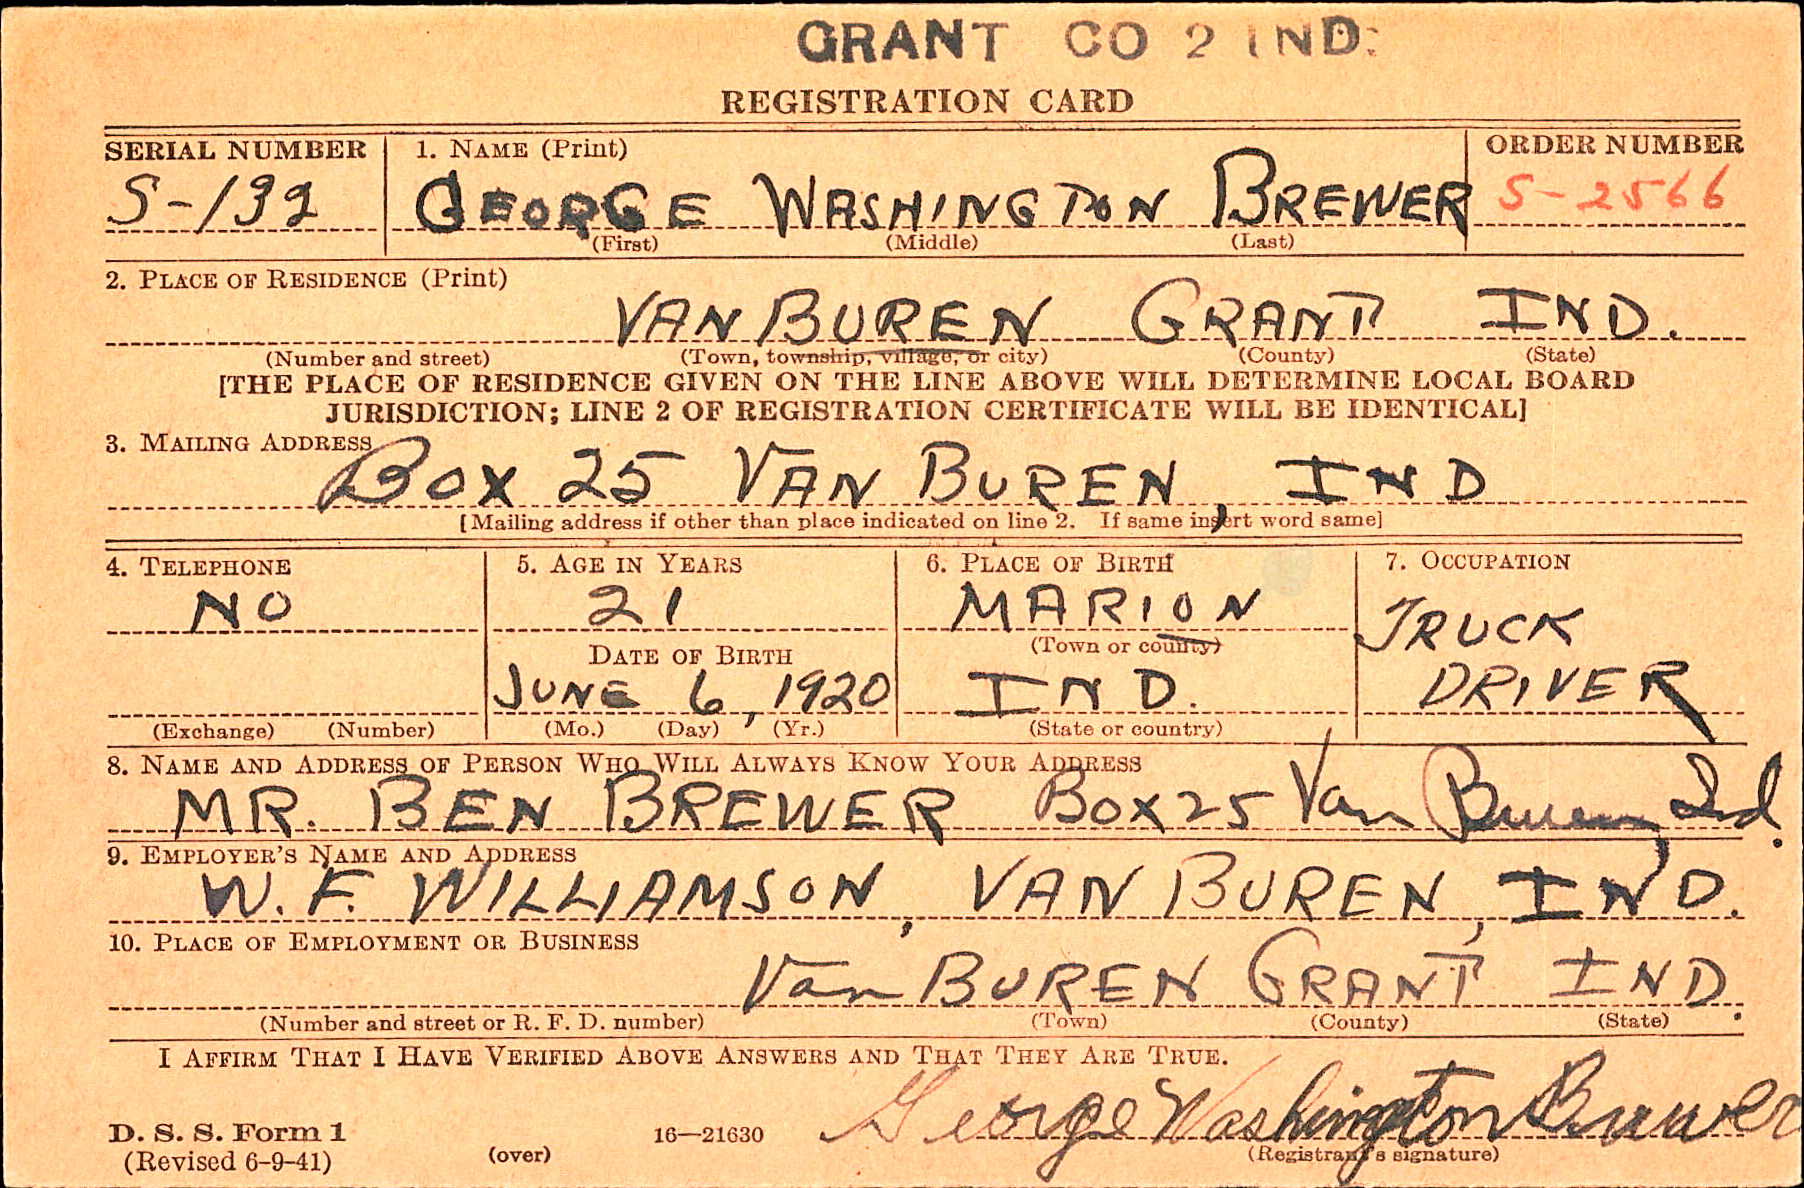 GRANT CO 2 IND.
REGISTRATION CARD
SERIAL NUMBER 1. NAME (Print) ORDER NUMBER
S-132 GEORGE WASHINGTON BREWER S-2566
(First) (Middle) (Last)
2. PLACE OF RESIDENCE (Print)
VAN BUREN GRANT IND.
(Number and street) (Town, township, village, or city) (County) (State)
[THE PLACE OF RESIDENCE GIVEN ON THE LINE ABOVE WILL DETERMINE LOCAL BOARD
JURISDICTION; LINE 2 OF REGISTRATION CERTIFICATE WILL BE IDENTICAL]
3. MAILING ADDRESS
BOX 25 VAN BUREN, IND
[Mailing address if other than place indicated on line 2. If same insert word same]
4. TELEPHONE 5. AGE IN YEARS 6. PLACE OF BIRTH 7. OCCUPATION
NO 21 MARION TRUCK
DATE OF BIRTH (Town or county)
JUNE 6, 1920 IND. DRIVER
(Exchange) (Number) (Mo.) (Day) (Yr.) (State or country)
8. NAME AND ADDRESS OF PERSON WHO WILL ALWAYS KNOW YOUR ADDRESS
MR. BEN BREWER BOX 25 Van Buren, Ind.
9. EMPLOYER'S NAME AND ADDRESS
W. F. WILLIAMSON, VAN BUREN, IND.
10. PLACE OF EMPLOYMENT OR BUSINESS
Van BUREN GRANT IND.
(Number and street or R. F. D. number) (Town) (County) (State)
I AFFIRM THAT I HAVE VERIFIED ABOVE ANSWERS AND THAT THEY ARE TRUE.
George Washington Brewer
D. S. S. Form 1 16—21630
(Revised 6-9-41) (over) (Registrant's signature)